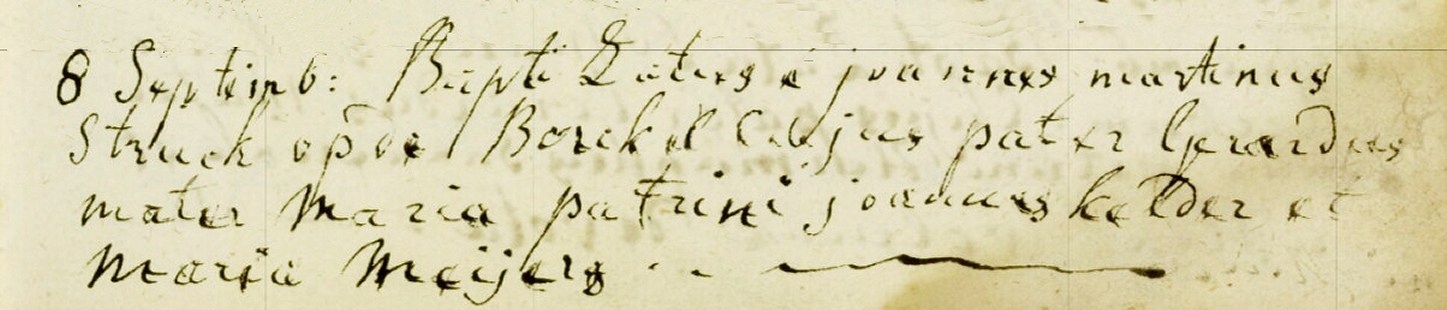 8 Septemb: BaptiZatus é joannes martinus
Struck op de Borckel Cujus pater Gerardus
mater Maria patrini joannes kelder et
Maria Meijers